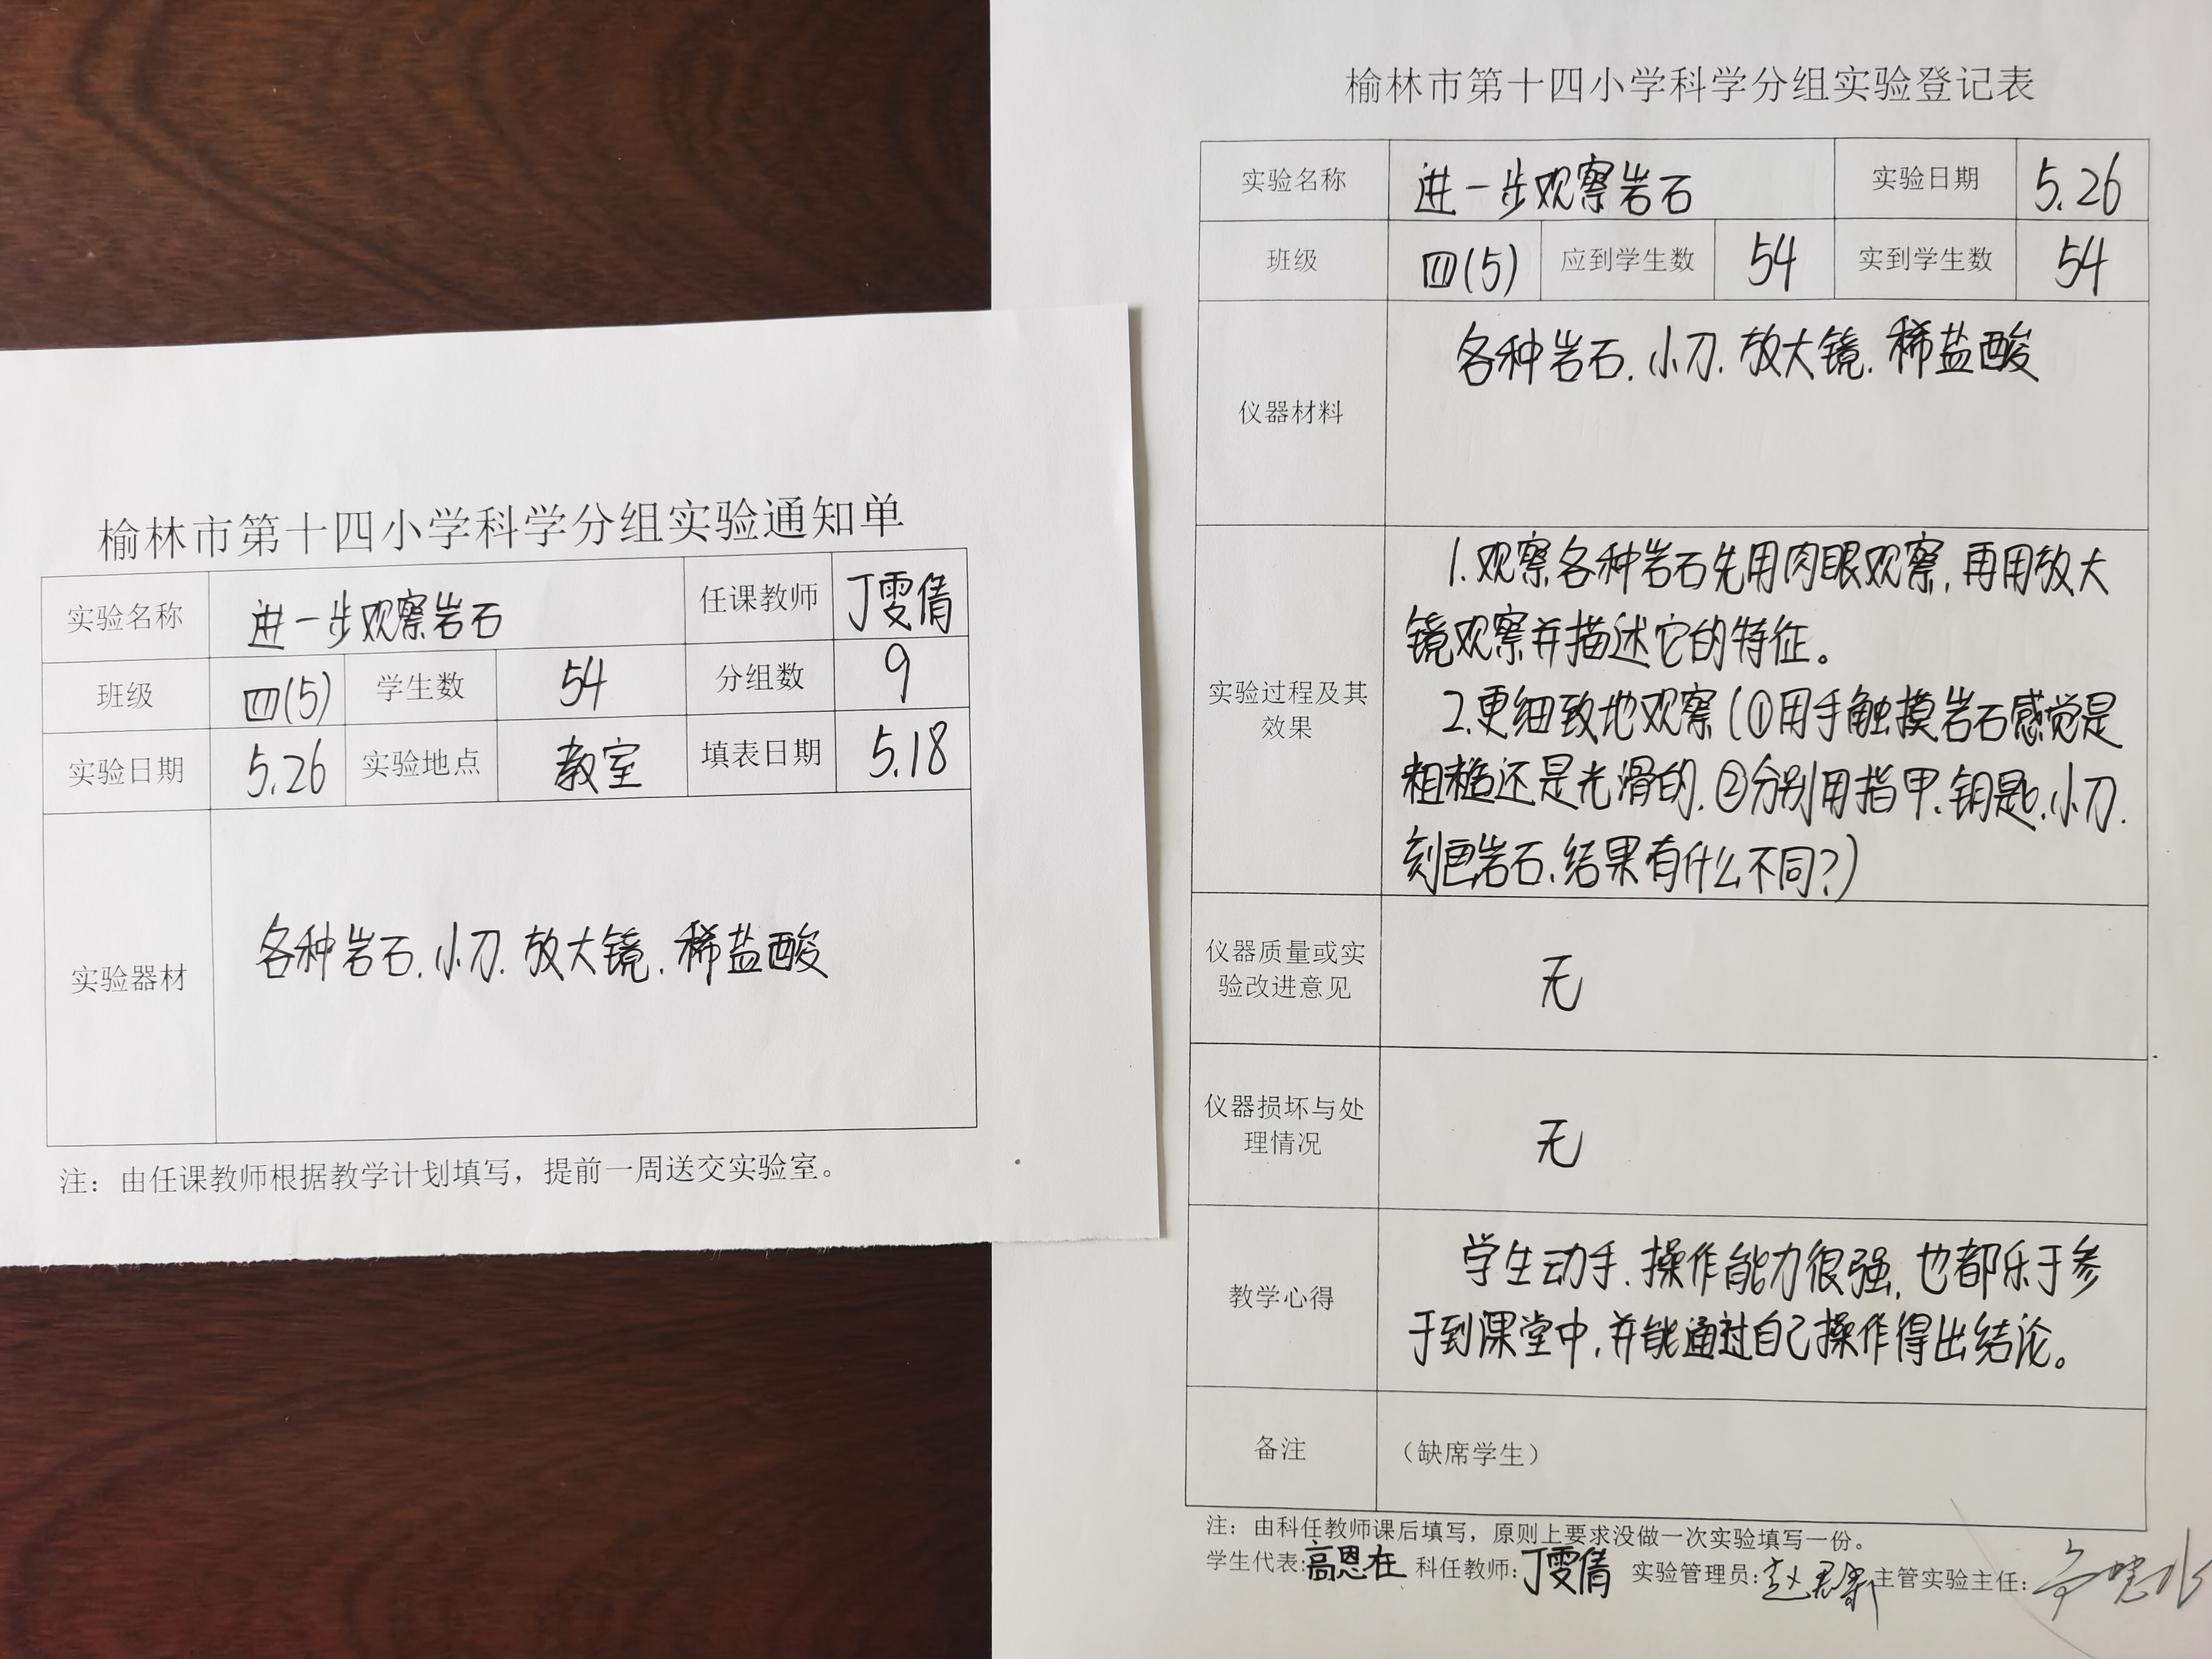 榆林市第十四小学科学分组实验通知单
实验名称 进一步观察岩石 任课教师 丁雯倩
班级 四(5) 学生数 54 分组数 9
实验日期 5.26 实验地点 教室 填表日期 5.18
实验器材 各种岩石.小刀.放大镜.稀盐酸
注：由任课教师根据教学计划填写，提前一周送交实验室。
榆林市第十四小学科学分组实验登记表
实验名称 进一步观察岩石 实验日期 5.26
班级 四(5) 应到学生数 54 实到学生数 54
仪器材料 各种岩石.小刀.放大镜.稀盐酸
实验过程及其
效果
1.观察各种岩石先用肉眼观察,再用放大
镜观察并描述它的特征。
2.更细致地观察(①用手触摸岩石感觉是
粗糙还是光滑的.②分别用指甲.钥匙.小刀.
刻画岩石.结果有什么不同?)
仪器质量或实
验改进意见
无
仪器损坏与处
理情况
无
教学心得
学生动手.操作能力很强,也都乐于参
于到课堂中,并能通过自己操作得出结论。
备注 （缺席学生）
注：由科任教师课后填写，原则上要求没做一次实验填写一份。
学生代表:高恩在 科任教师:丁雯倩 实验管理员: 主管实验主任: